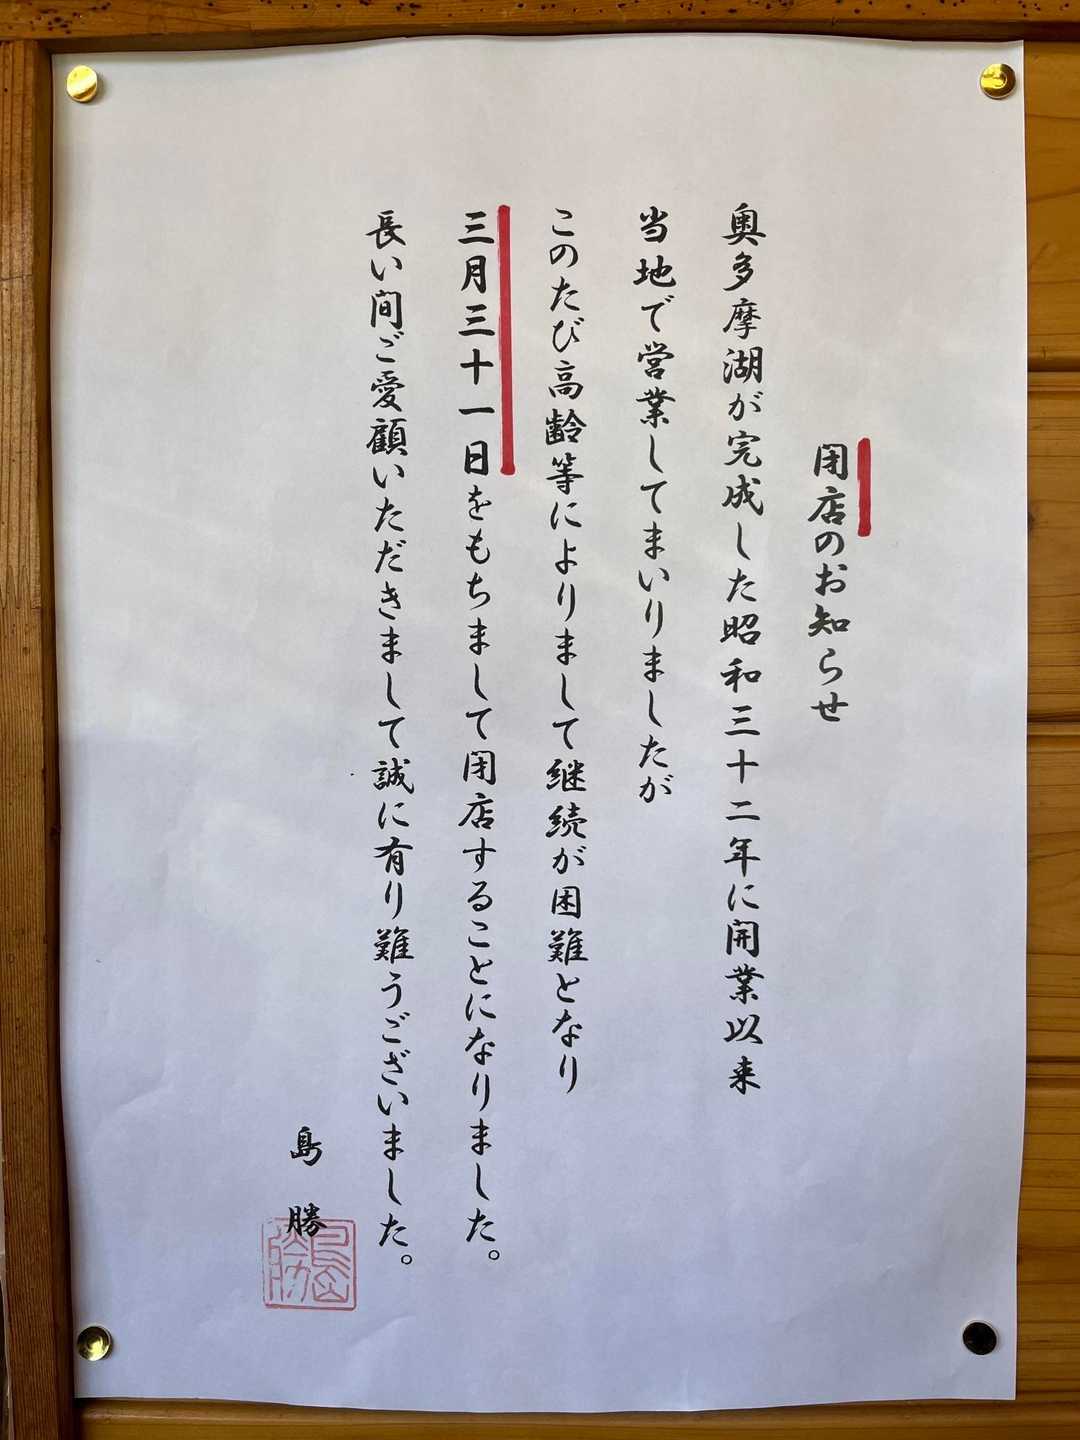 閉店のお知らせ
奥多摩湖が完成した昭和三十二年に開業以来
当地で営業してまいりましたが
このたび高齢等によりまして継続が困難となり
三月三十一日をもちまして閉店することになりました。
長い間ご愛顧いただきまして誠に有り難うございました。
島勝
島勝